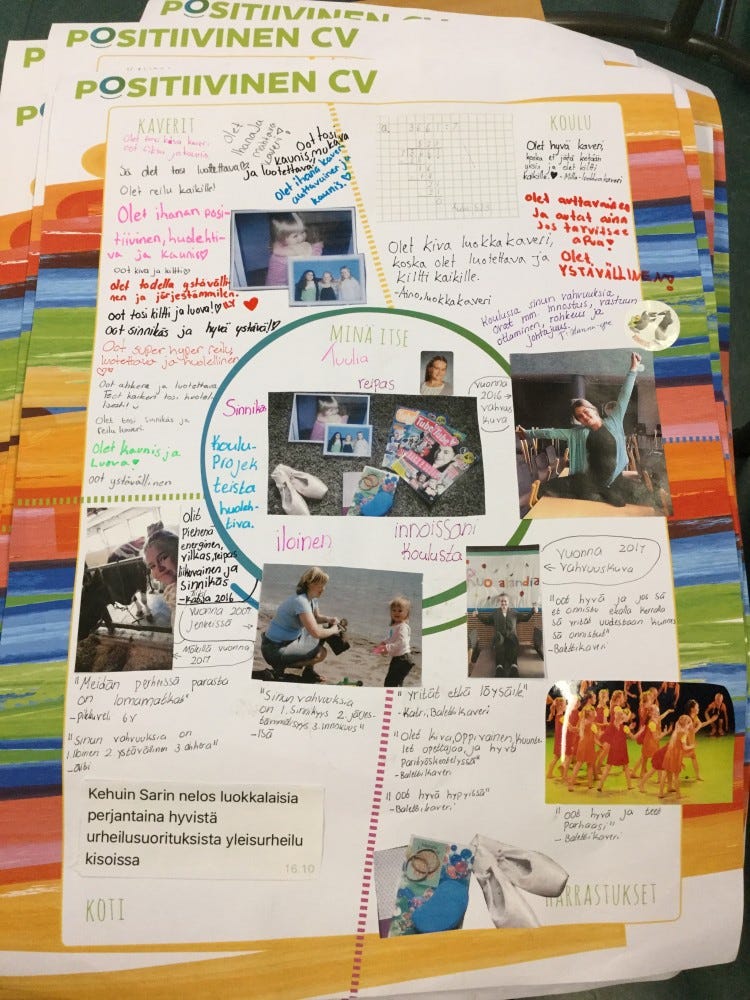 POSITIIVINEN CV
POSITIIVINEN CV
POSITIIVINEN CV
KAVERIT
Olet
ihana ja
mahtava
kaveri!
Oot tosi
kaunis, mukava
ja luotettava!
Olet ihana kaveri
auttavainen ja
kaunis.
Sä olet tosi luotettava
Olet reilu kaikille!
Olet ihanan posi-
tiivinen, huolehti-
va ja kaunis♡
Oot kiva ja kiltti♡
olet todella ystäväll-
nen ja järjestelmällinen.
oot tosi kiltti ja luova!
Oot sinnikäs ja hyvä ystävä!♡
Oot super hyper reilu,
luotettava ja huolellinen
Oot ahkera ja luotettava.
Teet kaiken tosi
Olet tosi sinnikäs ja
reilu kaveri.
Olet kaunis ja
Luova♥
oot ystävällinen
KOULU
Olet hyvä kaveri
koska et jätä ketään
yksin ja olet kiltti
kaikille.♥ -Milla-luokkakaveri
olet auttavainen
ja autat aina
jos tarvitsee
apua!
Olet
YSTÄVÄLLINEN!
Olet kiva luokkakaveri,
koska olet luotettava ja
kiltti kaikille.
-Aino, luokkakaveri
Koulussa sinun vahvuuksia
ovat mm. innostus, vastuun
ottaminen, rohkeus ja
johtajuus.
MINÄ ITSE
Tuulia
reipas
Sinnikäs
vuonna
2016→
vahvuus
kuva
Koulu-
Projek
teista
huoleh-
tiva.
iloinen
innoissani
koulusta
Olit
Pienenä
energinen,
vilkas, reipas
liikuvainen ja
sinnikäs
-Katja 2016
Vuonna 2007
Jenkeissä
Mökillä vuonna
2017
Ruokalandia
Vuonna 2017
← vahvuuskuva
"oot hyvä ja jos sä
et onnistu ekalla kerralla
sä yrität uudestaan kunnes
sä onnistut"
-Balettikaveri
"Meidän perheessä parasta
on lomamatkat"
-pikkuveli 6v
"Sinun vahvuuksia on
1.Iloinen 2 ystävällinen 3 ahkera"
-äiti
"Sinun vahvuuksia
on 1.Sinnikyys 2. järjes-
telmällisyys 3.innokkuus"
-Isä
"Yrität etkä löysäile"
-Katri, Balettikaveri
"olet kiva, oppivainen, kuunte-
let opettajaa, ja hyvä
parityöskentelyssä"
-Balettikaveri
"oot hyvä hypyissä"
-Balettikaveri
"oot hyvä ja teet
parhaasi"
-Balettikaveri
Kehuin Sarin nelos luokkalaisia
perjantaina hyvistä
urheilusuorituksista yleisurheilu
kisoissa
16.10
KOTI
HARRASTUKSET